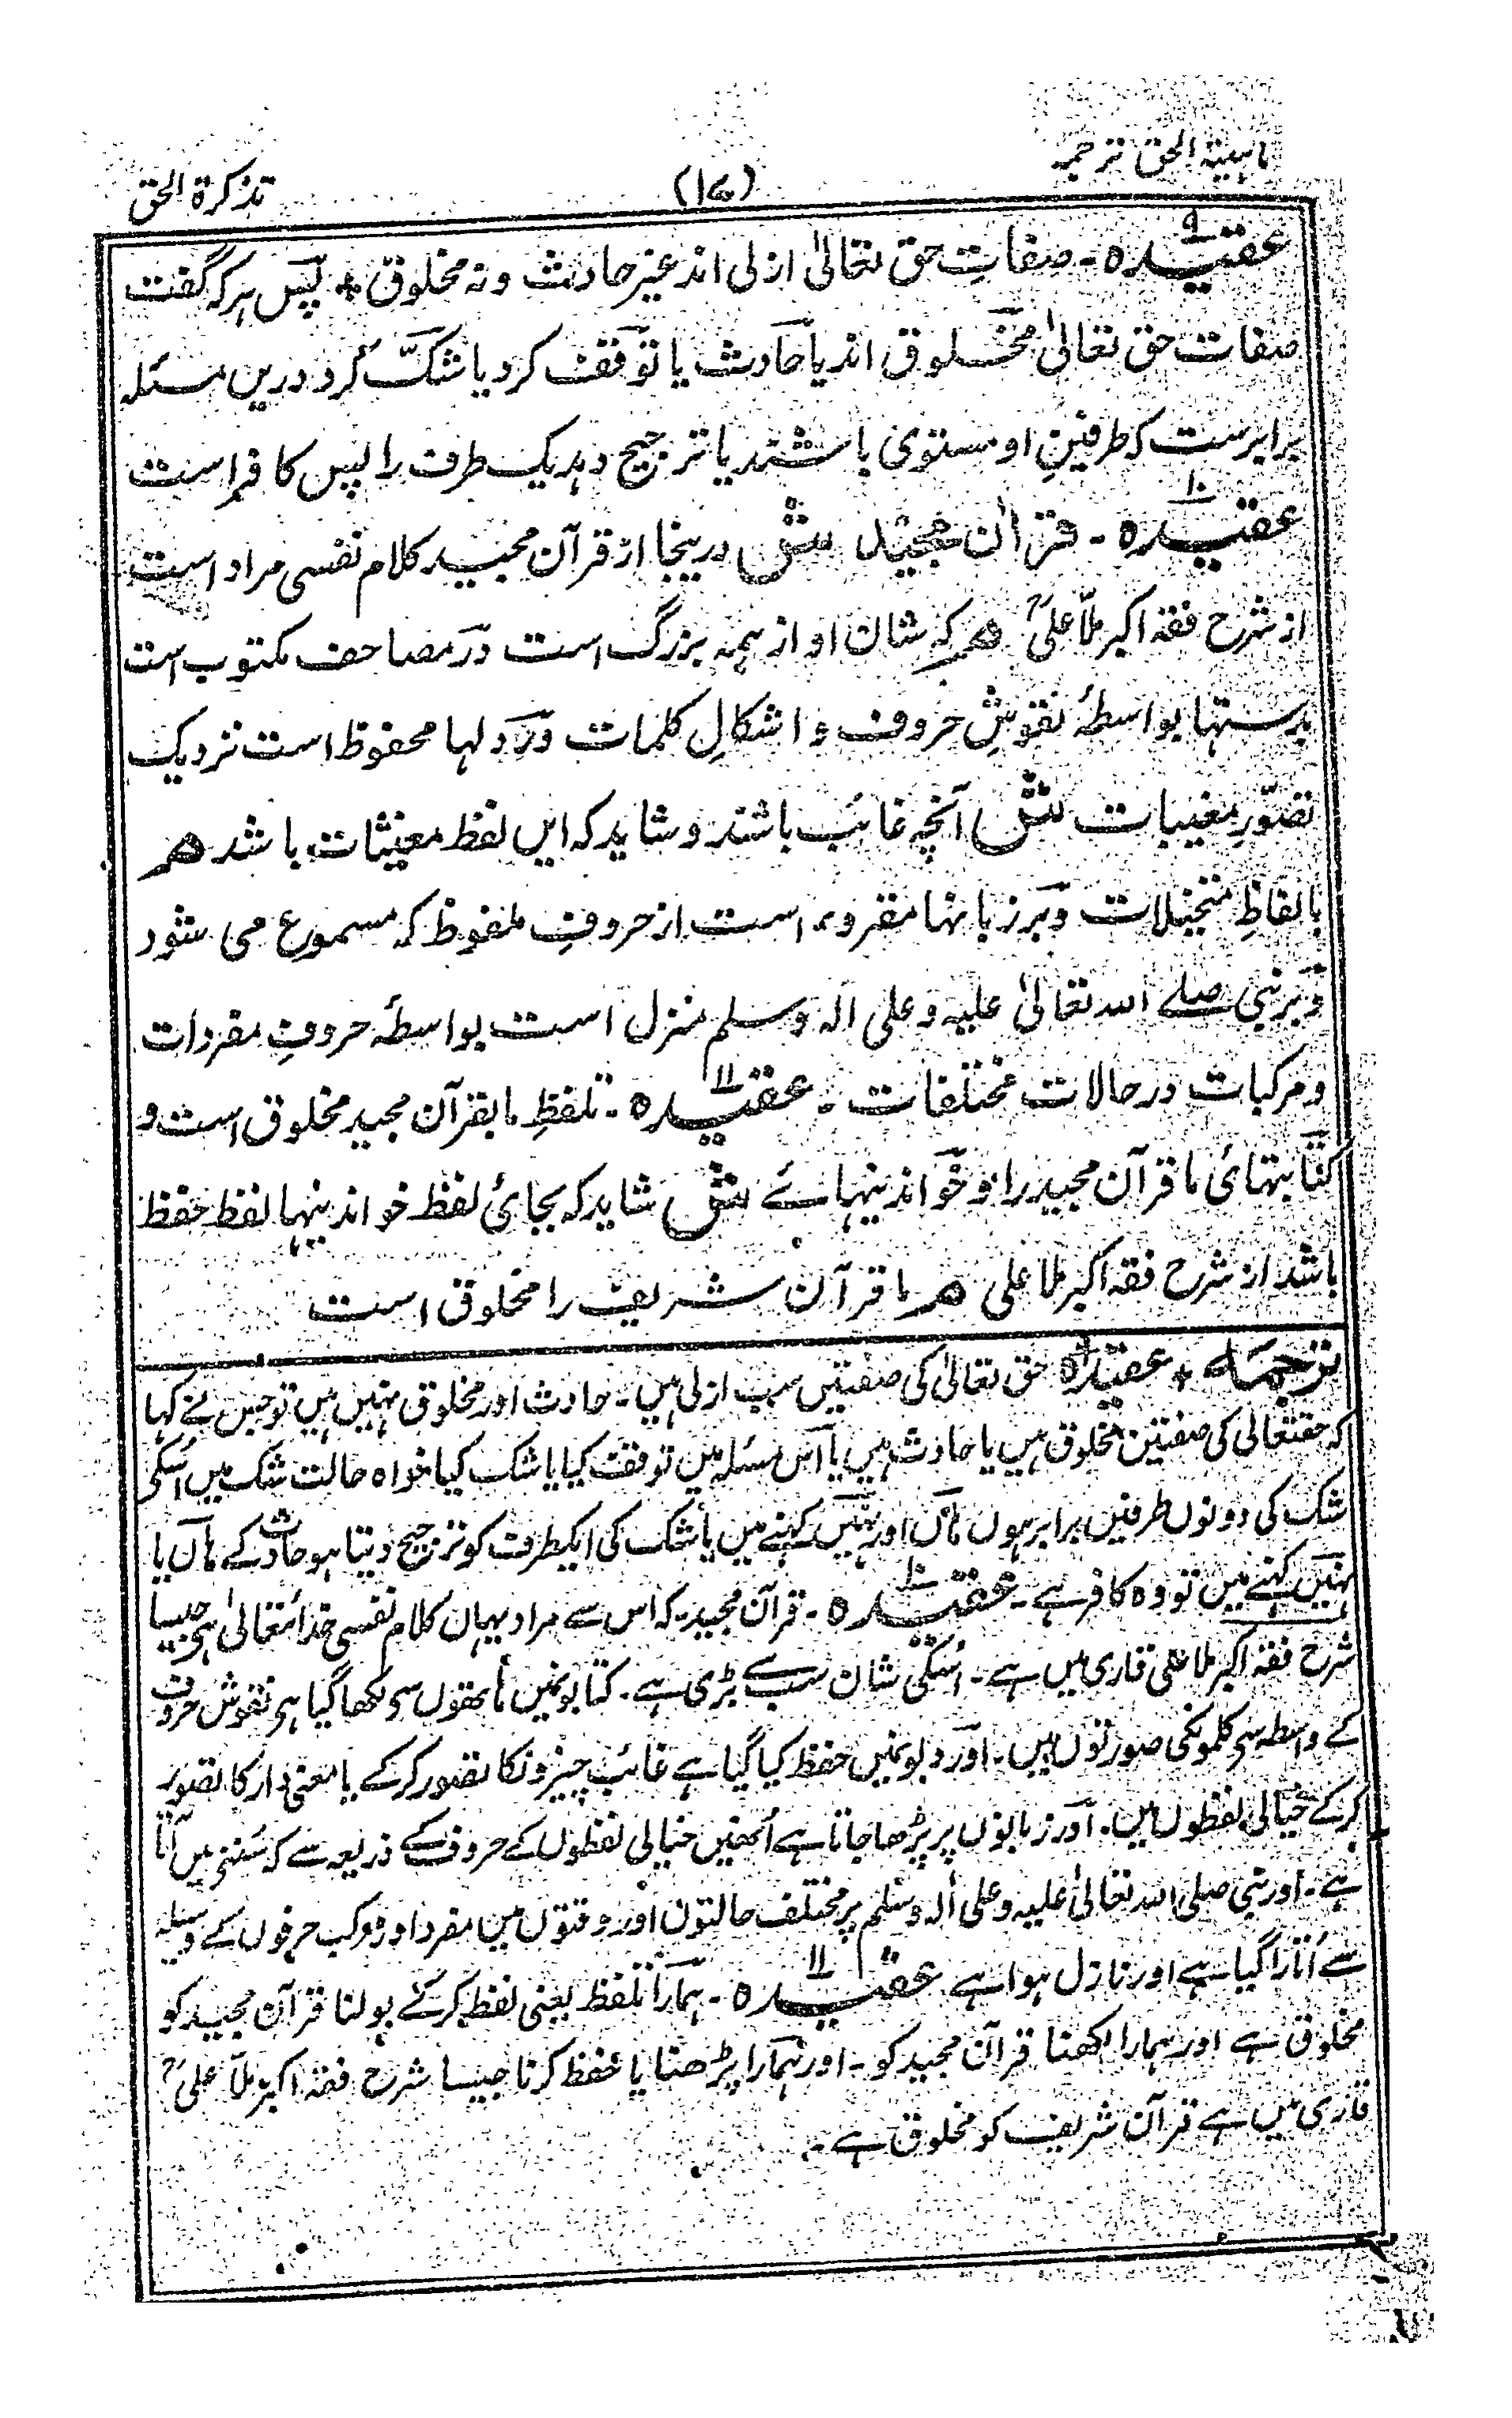 ماہیۃ الحق ترجمہ (۱۷) تذکرۃ الحق
عقیدہ ۹ - صفاتِ حق تعالیٰ ازلی اند غیر حادث و نہ مخلوق + پس ہر کہ گفت
صفات حق تعالیٰ مخلوق اند یا حادث یا توقف کرد یا شک کرد درین مسئلہ
برابرست کہ طرفین او مستوی باشند یا ترجیح دہد یک طرف را پس کافر است
عقیدہ ۱۰ - قرآن مجید ش درینجا از قرآن مجید کلام نفسی مراد است
از شرح فقہ اکبر ملّا علیؒ ھم کہ شان او از ہمہ بزرگ است در مصاحف مکتوب است
بدستہا بواسطۂ نقوشِ حروف و اشکالِ کلمات و در دلہا محفوظ است نزدیک
تصوّرِ مغیبات ش آنچہ غائب باشند و شاید کہ ایں لفظ معینثات باشد ھم
بالفاظِ متخیلات و بر زبانہا مقروء است از حروفِ ملفوظ کہ مسموع می شود
و بر نبی صلے اللہ تعالیٰ علیہ و علی آلہ وسلم منزل است بواسطۂ حروفِ مفردات
و مرکبات در حالات مختلفات - عقیدہ ۱۱ - تلفظِ ما بقرآن مجید مخلوق است و
کتابتہائ ما قرآن مجید را و خواندنیہائے ش شاید کہ بجائ لفظ خواندنیہا لفظ حفظ
باشد از شرح فقہ اکبر ملا علی ھم ما قرآن شریف را مخلوق است
ترجمہ + عقیدہ ۹ حق تعالیٰ کی صفتیں سب ازلی ہیں - حادث اور مخلوق نہیں ہیں تو جس نے کہا
کہ حقتعالی کی صفتیں مخلوق ہیں یا حادث ہیں یا اس مسئلہ میں توقف کیا یا شک کیا خواہ حالت شک میں اُسکی
شک کی دونوں طرفیں برابر ہوں ہاں اور نہیں کہنے میں یا شک کی ایکطرف کو ترجیح دیتا ہو حادث کے ہاں یا
نہیں کہنے میں تو وہ کافر ہے - عقیدہ ۱۰ - قرآن مجید - کہ اس سے مراد یہاں کلام نفسی خدائتعالیٰ ہی جیسا
شرح فقہ اکبر ملا علی قاری میں ہے - اُسکی شان سب سے بڑی ہے - کتابونمیں ہاتھوں سی لکھا گیا ہی نقوش حروف
کے واسطہ سی کلمونکی صورتوں میں - اور دلونمیں حفظ کیا گیا ہے غائب چیزونکا تصور کرکے یا معنی دار کا تصور
کرکے خیالی لفظوں میں - اور زبانوں پر پڑھا جاتا ہے اُنھیں خیالی لفظوں کے حروف کے ذریعہ سے کہ سُننی میں آتا
ہے - اور نبی صلی اللہ تعالیٰ علیہ و علی آلہ وسلم پر مختلف حالتوں اور وقتوں میں مفرد اور مرکب حرفوں کے وسیلہ
سے اُتارا گیا ہے اور نازل ہوا ہے عقیدہ ۱۱ - ہمارا تلفظ یعنی لفظ کرکے بولنا قرآن مجید کو
مخلوق ہے اور ہمارا لکھنا قرآن مجید کو - اور ہمارا پڑھنا یا حفظ کرنا جیسا شرح فقہ اکبر ملّا علیؒ
قاری میں ہے قرآن شریف کو مخلوق ہے -